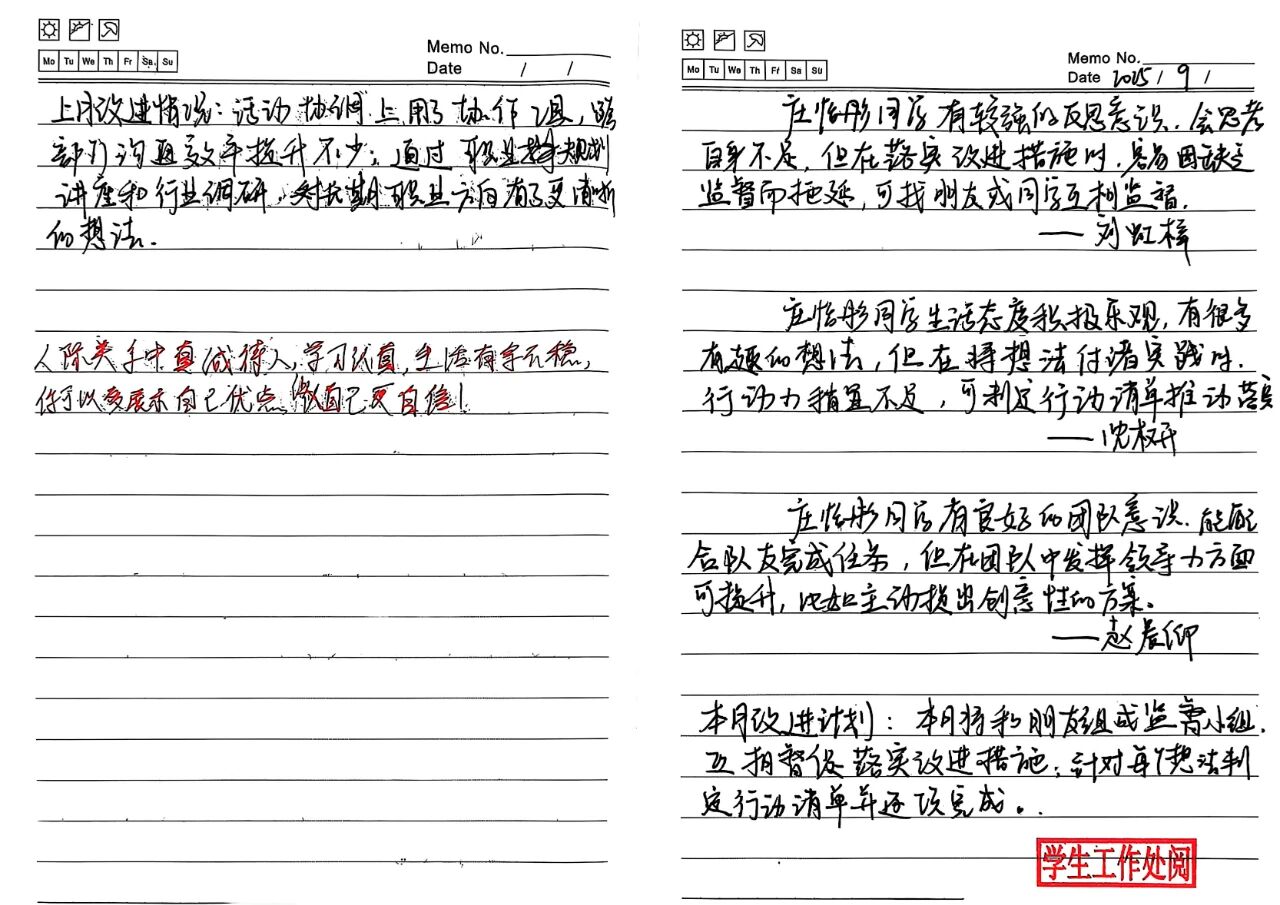 Mo Tu We Th Fr Sa Su
Memo No.
Date / /
上月改进情况：活动协调上用了协作工具，跨
部门沟通效率提升不少；通过职业规划
讲座和行业调研，对长期职业方向有了更清晰
的想法．
人际关系中真诚待人，学习认真，生活有序不稳，
你可以多展示自己优点，做自己更自信！
Mo Tu We Th Fr Sa Su
Memo No.
Date 2025 / 9 /
庄怡彤同学有较强的反思意识．会思考
自身不足，但在落实改进措施时．容易因缺乏
监督而拖延，可找朋友或同学互相监督．
——刘虹梓
庄怡彤同学生活态度积极乐观，有很多
有趣的想法，但在将想法付诸实践时．
行动力稍显不足，可制定行动清单推动落实
——沈权开
庄怡彤同学有良好的团队意识．能配
合队友完成任务，但在团队中发挥领导力方面
可提升，比如主动提出创意性的方案。
——赵晨仰
本月改进计划：本月将和朋友组成监督小组．
互相督促落实改进措施；针对每个想法制
定行动清单并逐项完成。
学生工作处阅